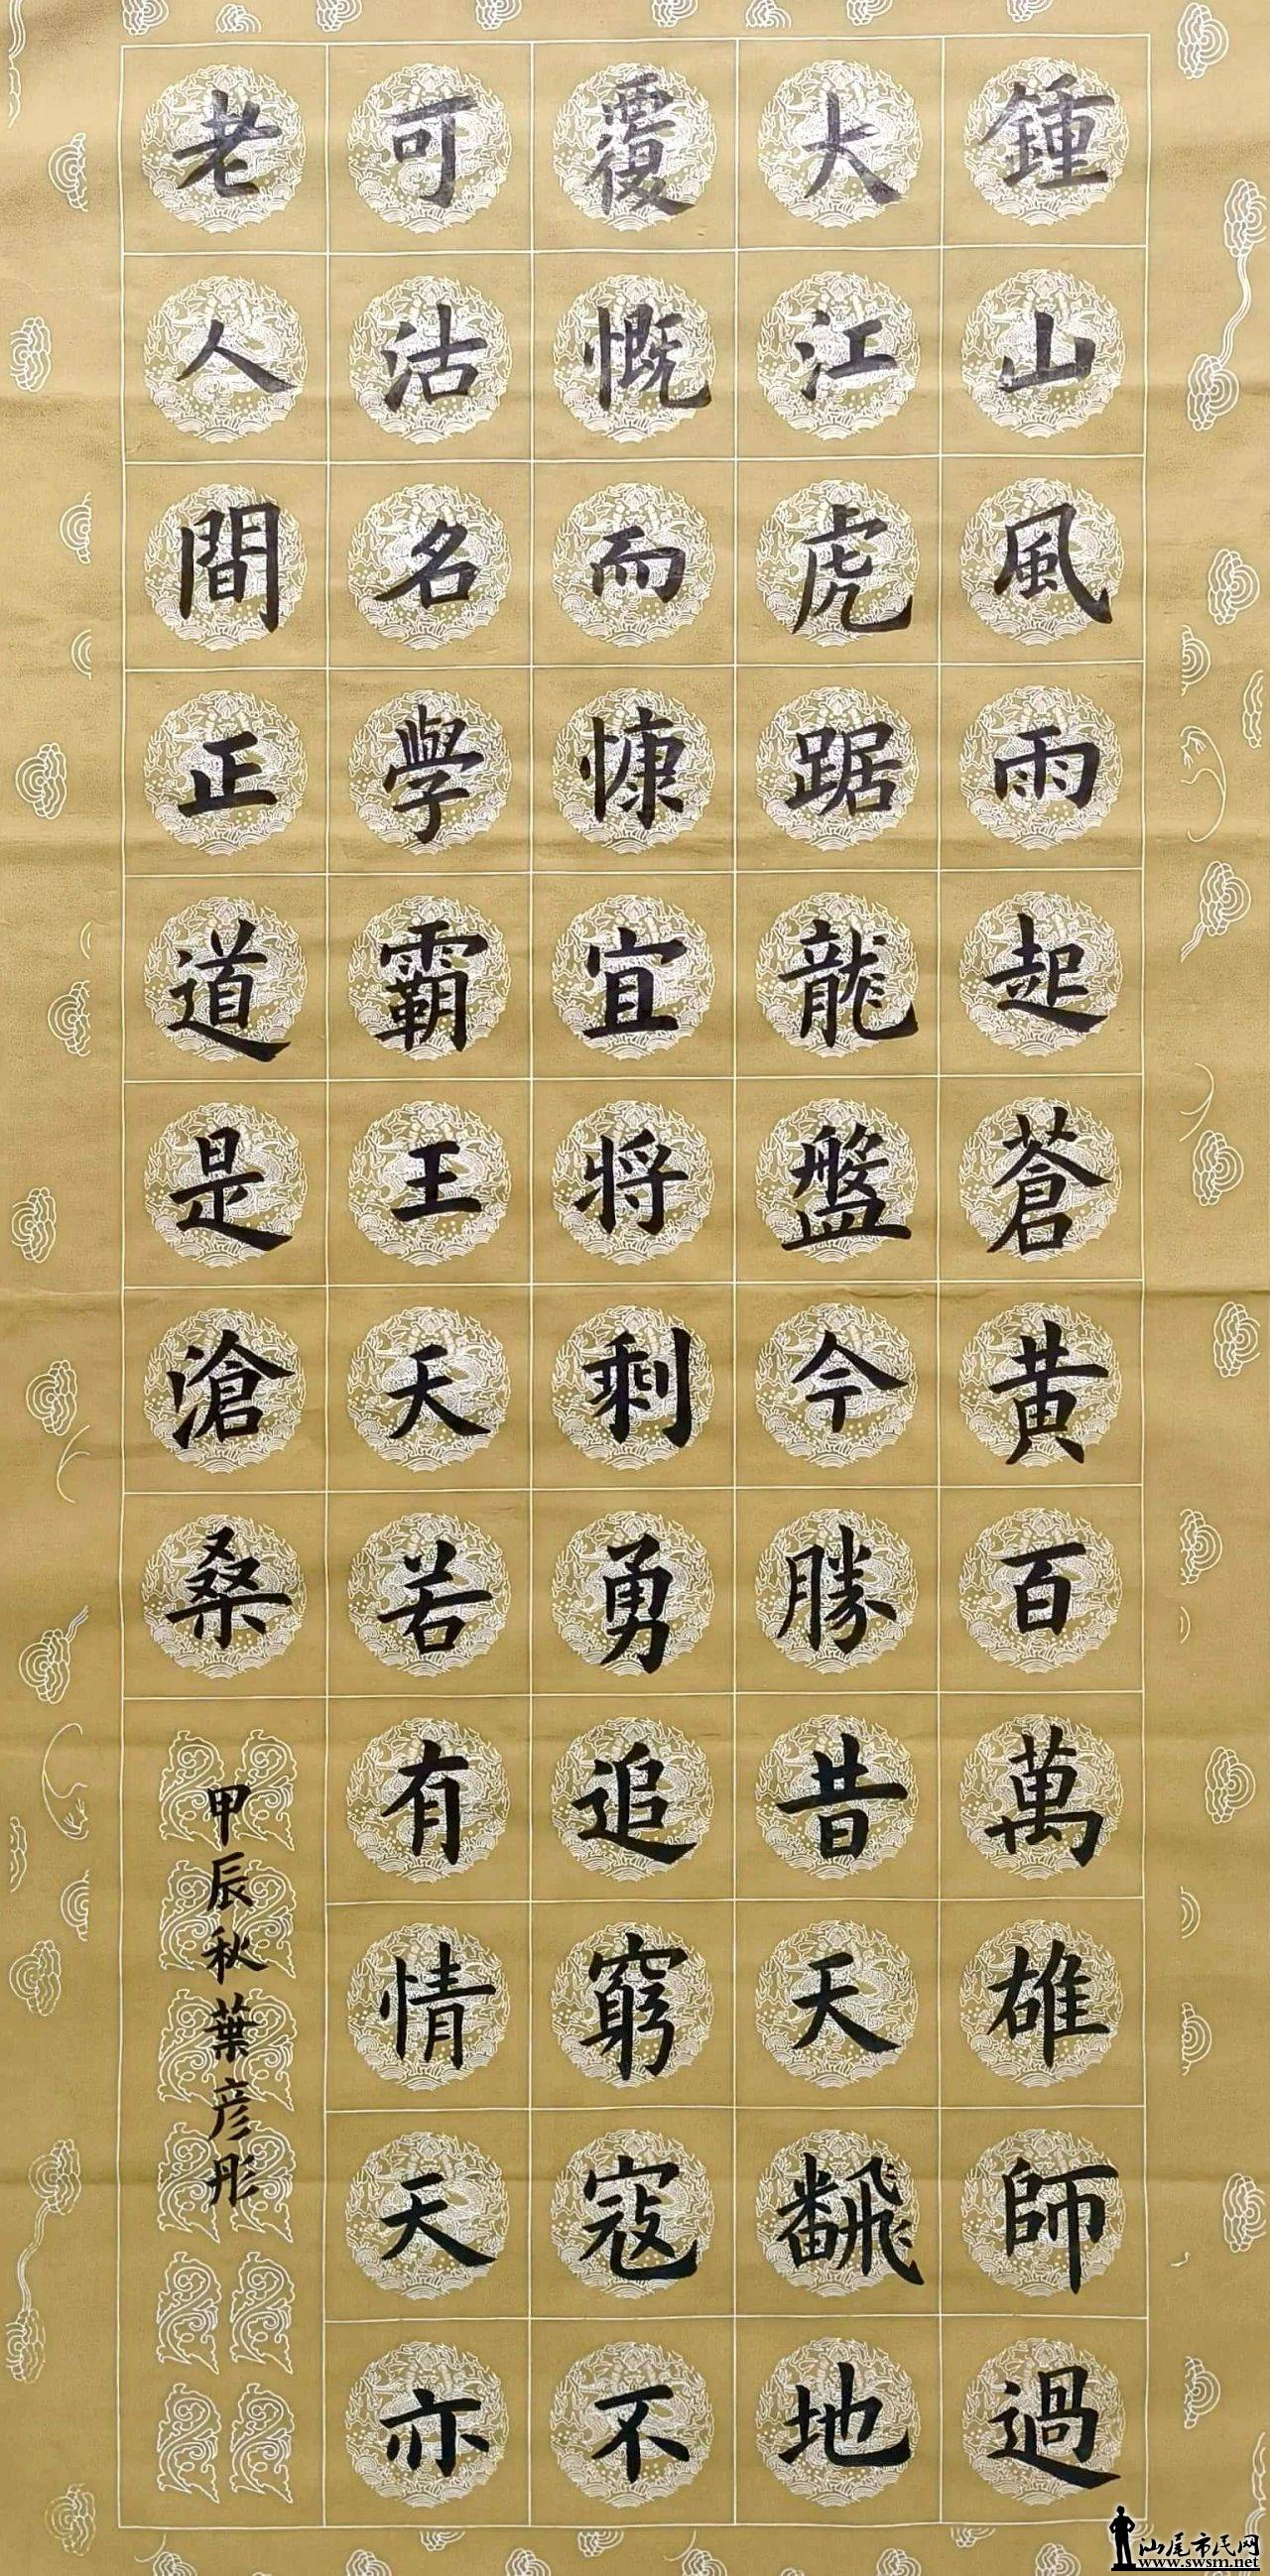 鍾山風雨起蒼黄百萬雄師過
大江虎踞龍盤今勝昔天飜地
覆慨而慷宜将剩勇追窮寇不
可沽名學霸王天若有情天亦
老人間正道是滄桑
甲辰秋葉彦彤
汕尾市民网
www.swsm.net